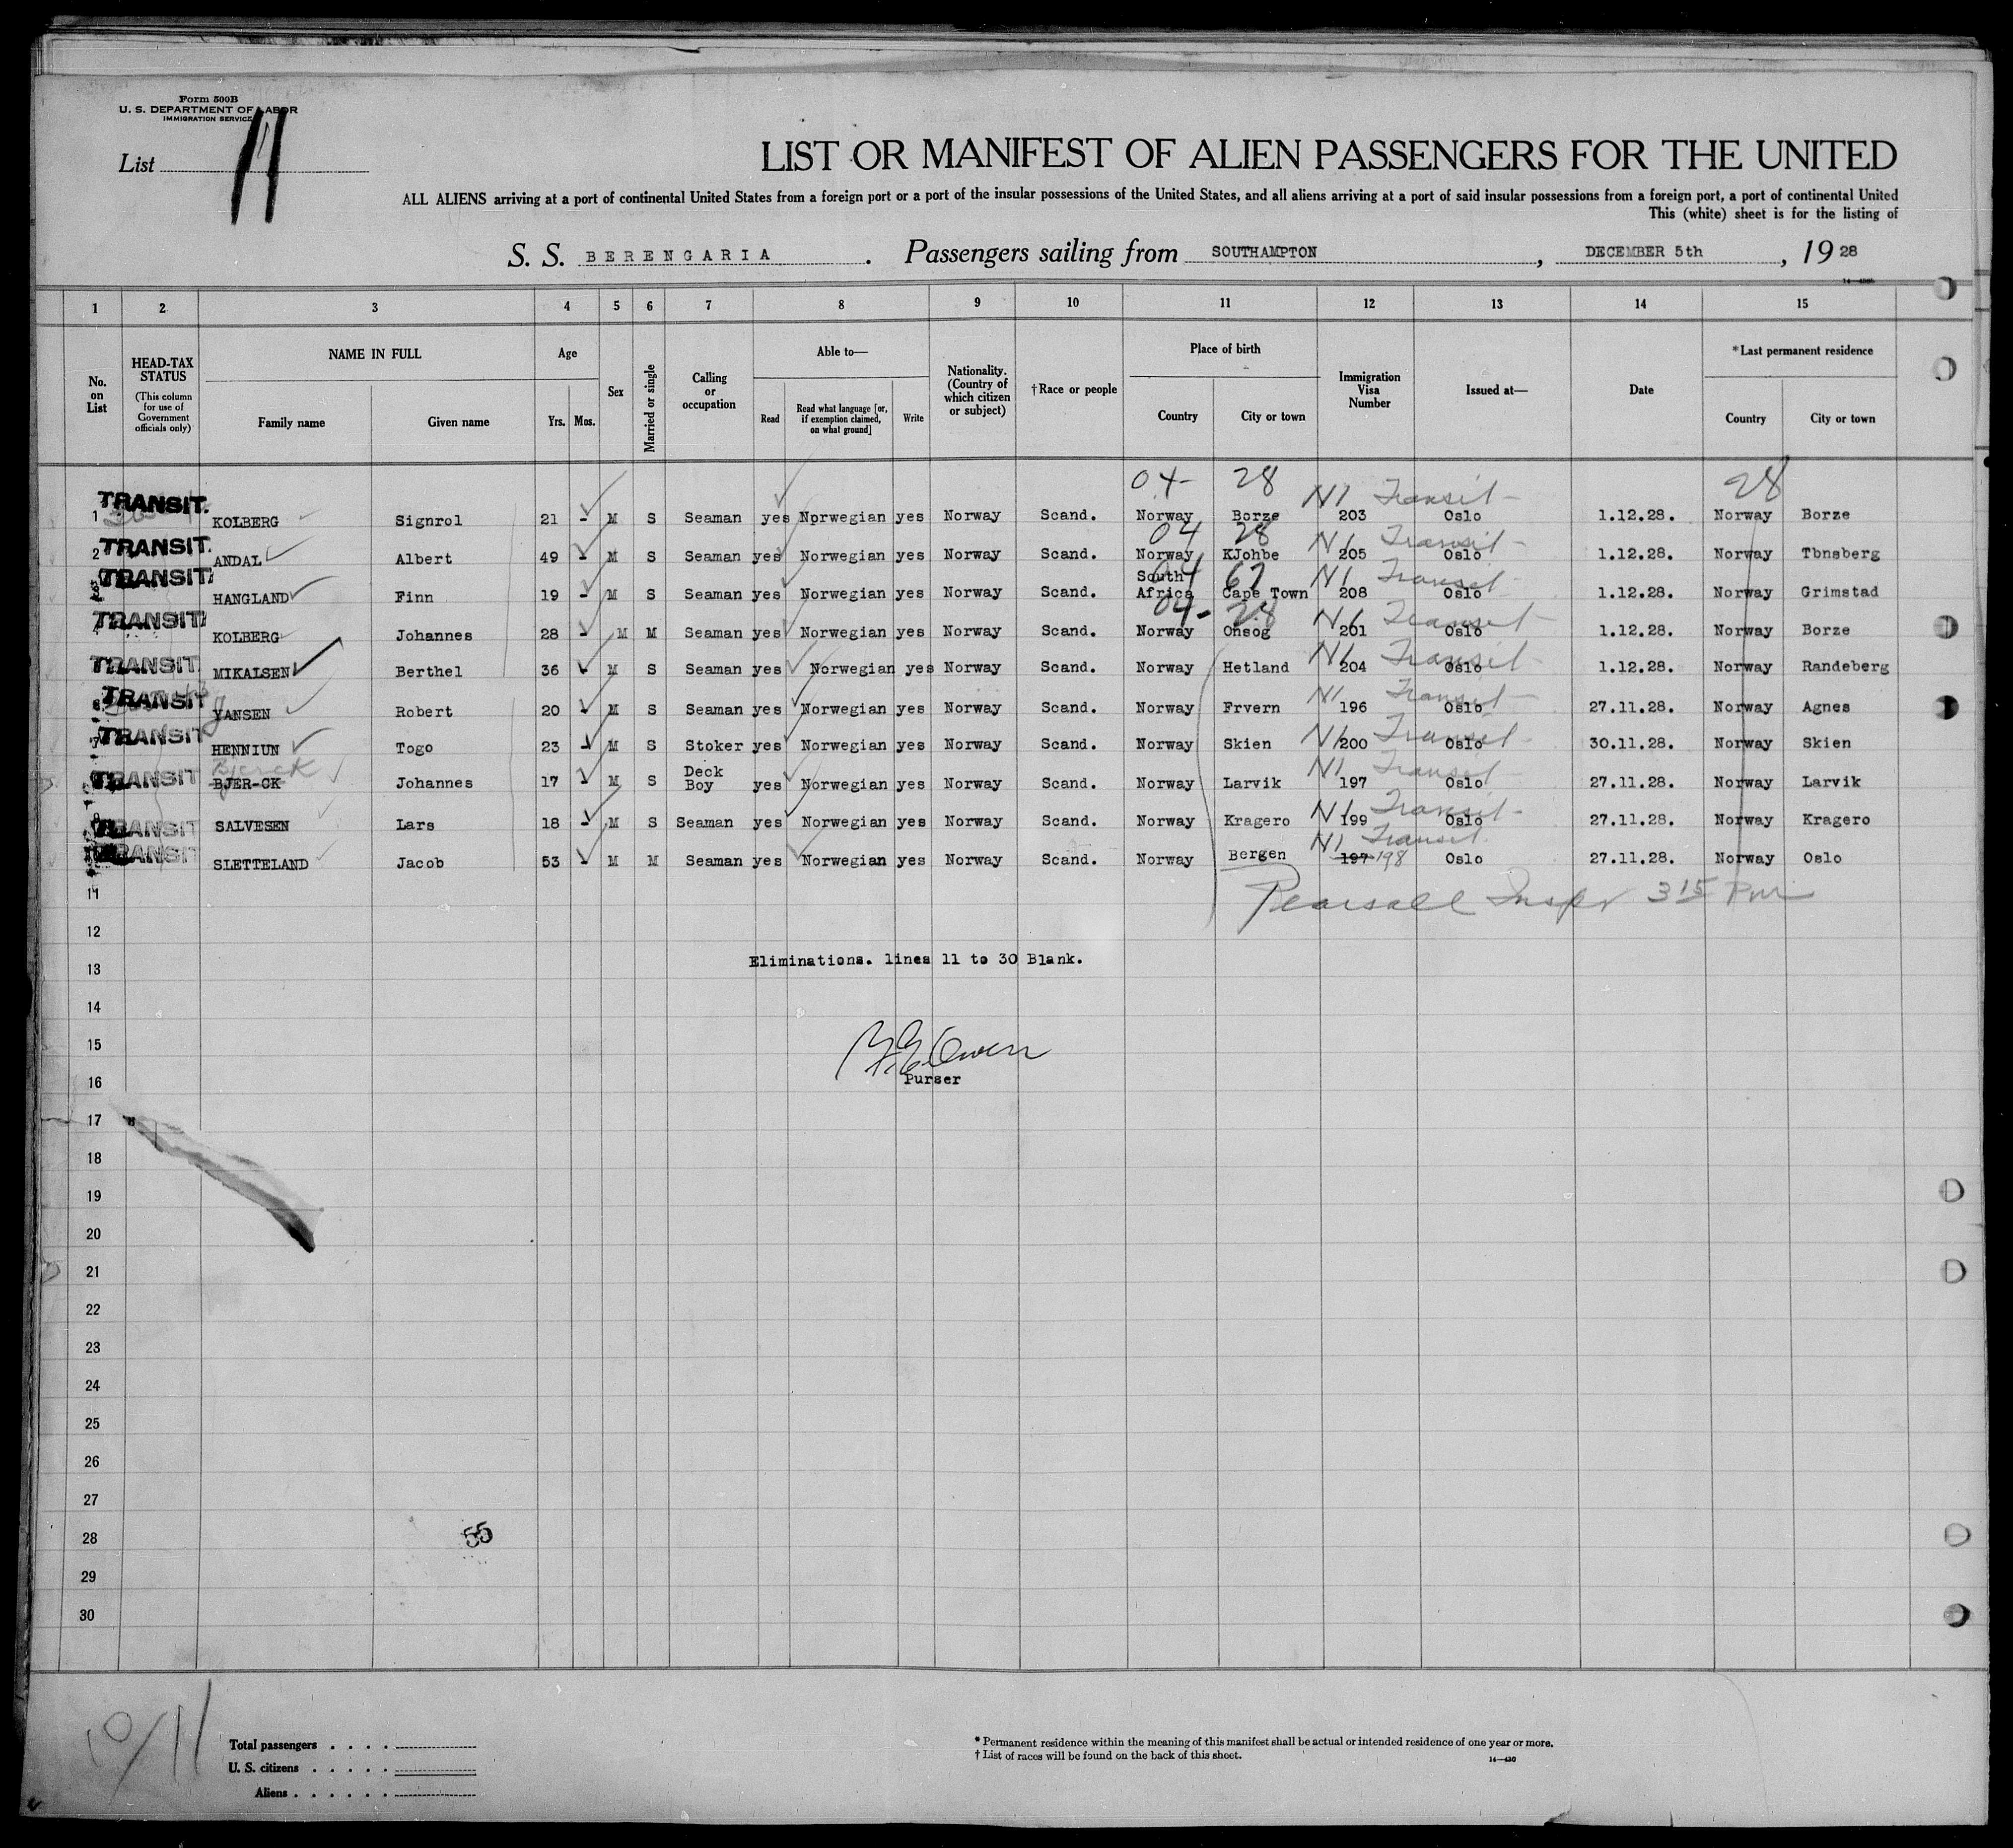 Form 500B
U. S. DEPARTMENT OF LABOR
IMMIGRATION SERVICE
List 11
LIST OR MANIFEST OF ALIEN PASSENGERS FOR THE UNITED
ALL ALIENS arriving at a port of continental United States from a foreign port or a port of the insular possessions of the United States, and all aliens arriving at a port of said insular possessions from a foreign port, a port of continental United
This (white) sheet is for the listing of
S. S. BERENGARIA. Passengers sailing from SOUTHAMPTON, DECEMBER 5th, 19 28
1 2 3 4 5 6 7 8 9 10 11 12 13 14 15
No. on List HEAD-TAX STATUS (This column for use of Government officials only) NAME IN FULL Family name Given name Age Yrs. Mos. Sex Married or single Calling or occupation Able to— Read Read what language [or, if exemption claimed, on what ground] Write Nationality. (Country of which citizen or subject) †Race or people Place of birth Country City or town Immigration Visa Number Issued at— Date *Last permanent residence Country City or town
04- 28 N1 Transit- 28
1 TRANSIT. KOLBERG Signrol 21 - M S Seaman yes Norwegian yes Norway Scand. Norway Borze 203 Oslo 1.12.28. Norway Borze
04 28 N1 Transit-
2 TRANSIT. ANDAL Albert 49 - M S Seaman yes Norwegian yes Norway Scand. Norway KJohbe 205 Oslo 1.12.28. Norway Tbnsberg
04 67 N1 Transit-
3 TRANSIT HANGLAND Finn 19 - M S Seaman yes Norwegian yes Norway Scand. South Africa Cape Town 208 Oslo 1.12.28. Norway Grimstad
04- 28 N1 Transit-
TRANSIT KOLBERG Johannes 28 - M M Seaman yes Norwegian yes Norway Scand. Norway Onsog 201 Oslo 1.12.28. Norway Borze
N1 Transit-
TRANSIT MIKALSEN Berthel 36 - M S Seaman yes Norwegian yes Norway Scand. Norway Hetland 204 Oslo 1.12.28. Norway Randeberg
N1 Transit-
6 TRANSIT J YANSEN Robert 20 - M S Seaman yes Norwegian yes Norway Scand. Norway Frvern 196 Oslo 27.11.28. Norway Agnes
N1 Transit-
7 TRANSIT HENNIUN Togo 23 - M S Stoker yes Norwegian yes Norway Scand. Norway Skien 200 Oslo 30.11.28. Norway Skien
Bjerck N1 Transit-
TRANSIT BJER-CK Johannes 17 - M S Deck Boy yes Norwegian yes Norway Scand. Norway Larvik 197 Oslo 27.11.28. Norway Larvik
N1 Transit-
9 TRANSIT SALVESEN Lars 18 - M S Seaman yes Norwegian yes Norway Scand. Norway Kragero 199 Oslo 27.11.28. Norway Kragero
N1 Transit
TRANSIT SLETTELAND Jacob 53 - M M Seaman yes Norwegian yes Norway Scand. Norway Bergen 197 198 Oslo 27.11.28. Norway Oslo
11 Pearsall Inspr 3 15 Pm
12
13 Eliminations. lines 11 to 30 Blank.
14
15 Owen
16 Purser
17
18
19
20
21
22
23
24
25
26
27
28 55
29
30
10/11
Total passengers
U. S. citizens
Aliens
* Permanent residence within the meaning of this manifest shall be actual or intended residence of one year or more.
† List of races will be found on the back of this sheet.
14—430